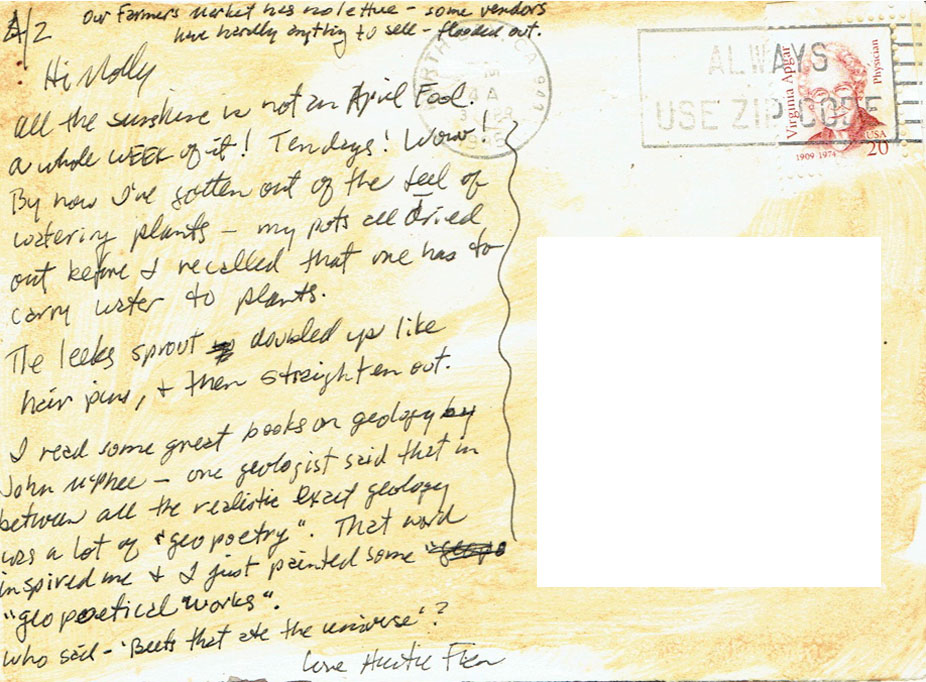 4/2 Our Farmers Market has no lettuce - some vendors
have hardly anything to sell - flooded out.
Hi Molly
All the sunshine is not an April Fool.
a whole WEEK of it! Ten days! Wow!
By now I've gotten out of the feel of
watering plants - my pots all dried
out before I recalled that one has to
carry water to plants.
The leeks sprout doubled up like
hair pins, & then straighten out.
I read some great books on geology by
John McPhee - one geologist said that in
between all the realistic exact geology
was a lot of "geopoetry". That word
inspired me & I just painted some
"geopoetical works".
Who said - 'Beets that ate the universe'?
Love
CA 941
ALWAYS
USE ZIP CODE
Virginia Apgar
Physician
1909-1974
USA
20